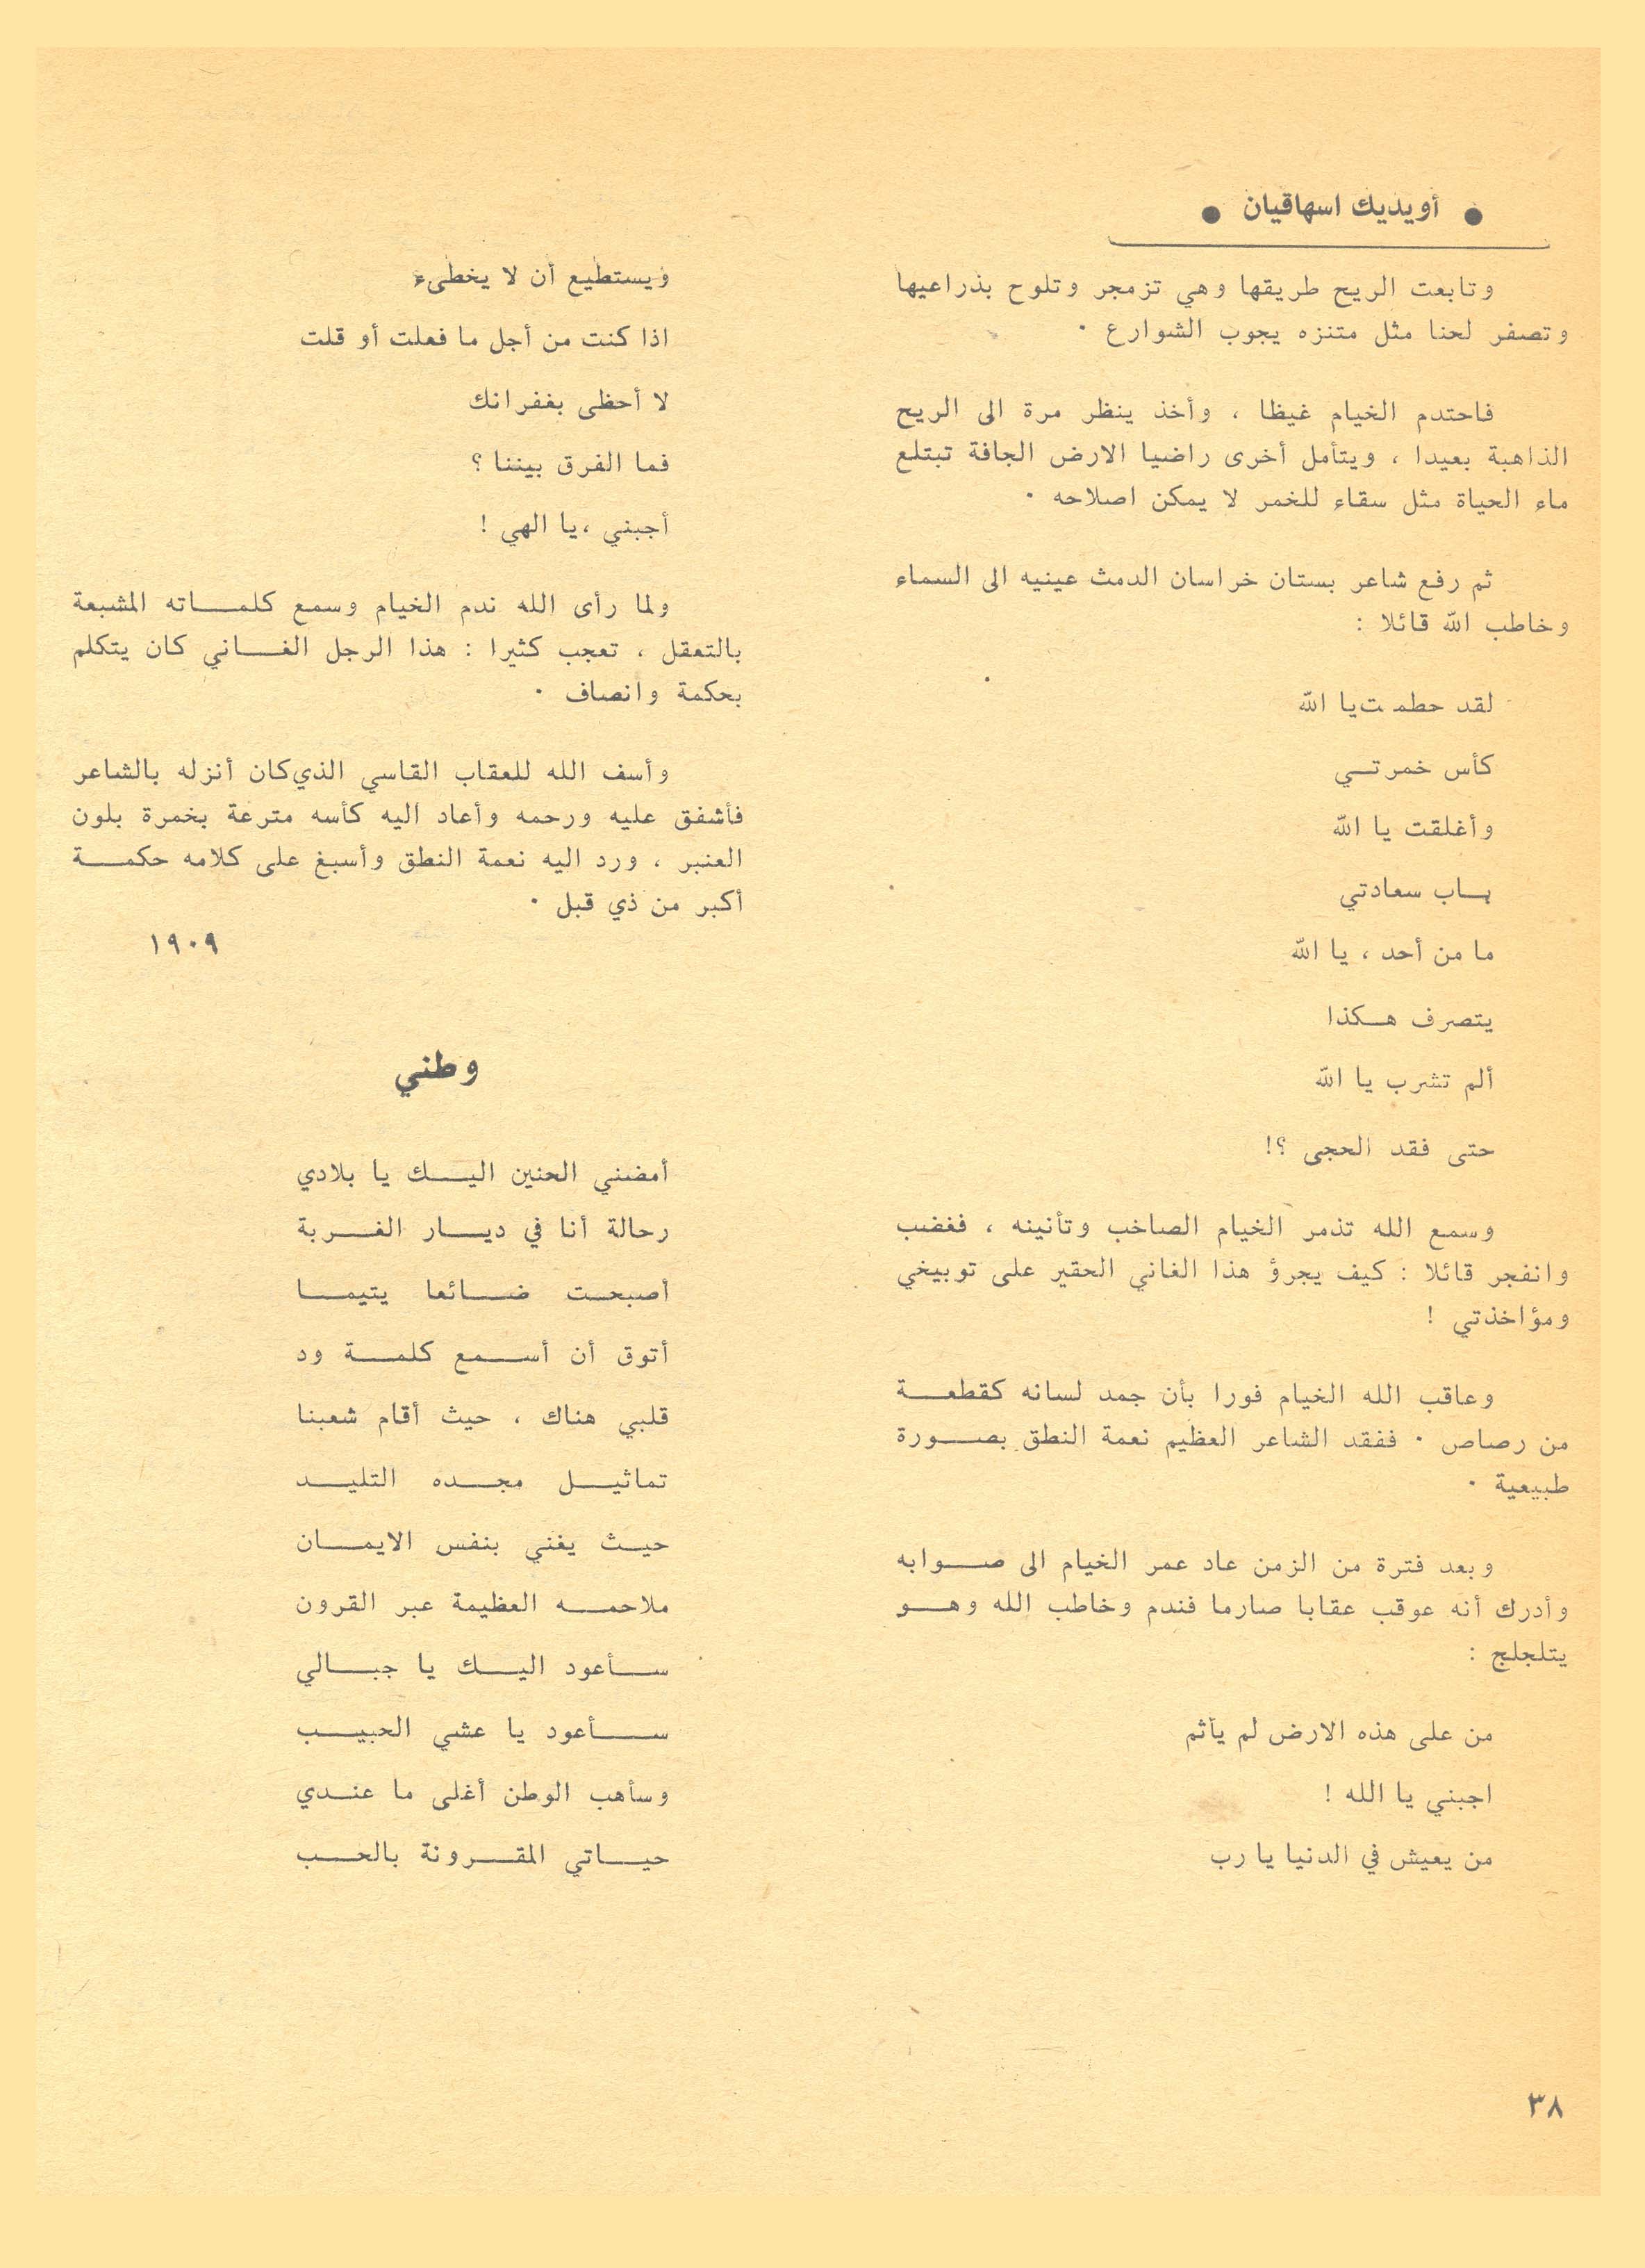 ● أويديك اسهاقيان ●
وتابعت الريح طريقها وهي تزمجر وتلوح بذراعيها
وتصفر لحنا مثل متنزه يجوب الشوارع ٠
فاحتدم الخيام غيظا ، وأخذ ينظر مرة الى الريح
الذاهبة بعيدا ، ويتأمل أخرى راضيا الارض الجافة تبتلع
ماء الحياة مثل سقاء للخمر لا يمكن اصلاحه ٠
ثم رفع شاعر بستان خراسان الدمث عينيه الى السماء
وخاطب الله قائلا :
لقد حطمت يا الله
كأس خمرتي
وأغلقت يا الله
باب سعادتي
ما من أحد ، يا الله
يتصرف هكذا
ألم تشرب يا الله
حتى فقد الحجى ؟!
وسمع الله تذمر الخيام الصاخب وتأنينه ، فغضب
وانفجر قائلا : كيف يجرؤ هذا الغاني الحقير على توبيخي
ومؤاخذتي !
وعاقب الله الخيام فورا بأن جمد لسانه كقطعة
من رصاص ٠ ففقد الشاعر العظيم نعمة النطق بصورة
طبيعية ٠
وبعد فترة من الزمن عاد عمر الخيام الى صوابه
وأدرك أنه عوقب عقابا صارما فندم وخاطب الله وهو
يتلجلج :
من على هذه الارض لم يأثم
اجبني يا الله !
من يعيش في الدنيا يا رب
ويستطيع أن لا يخطىء
اذا كنت من أجل ما فعلت أو قلت
لا أحظى بغفرانك
فما الفرق بيننا ؟
أجبني ، يا الهي !
ولما رأى الله ندم الخيام وسمع كلماته المشبعة
بالتعقل ، تعجب كثيرا : هذا الرجل الغاني كان يتكلم
بحكمة وانصاف ٠
وأسف الله للعقاب القاسي الذي كان أنزله بالشاعر
فأشفق عليه ورحمه وأعاد اليه كأسه مترعة بخمرة بلون
العنبر ، ورد اليه نعمة النطق وأسبغ على كلامه حكمة
أكبر من ذي قبل ٠
١٩٠٩
وطني
أمضني الحنين اليك يا بلادي
رحالة أنا في ديار الغربة
أصبحت ضائعا يتيما
أتوق أن أسمع كلمة ود
قلبي هناك ، حيث أقام شعبنا
تماثيل مجده التليد
حيث يغني بنفس الايمان
ملاحمه العظيمة عبر القرون
سأعود اليك يا جبالي
سأعود يا عشي الحبيب
وسأهب الوطن أغلى ما عندي
حياتي المقرونة بالحب
٣٨